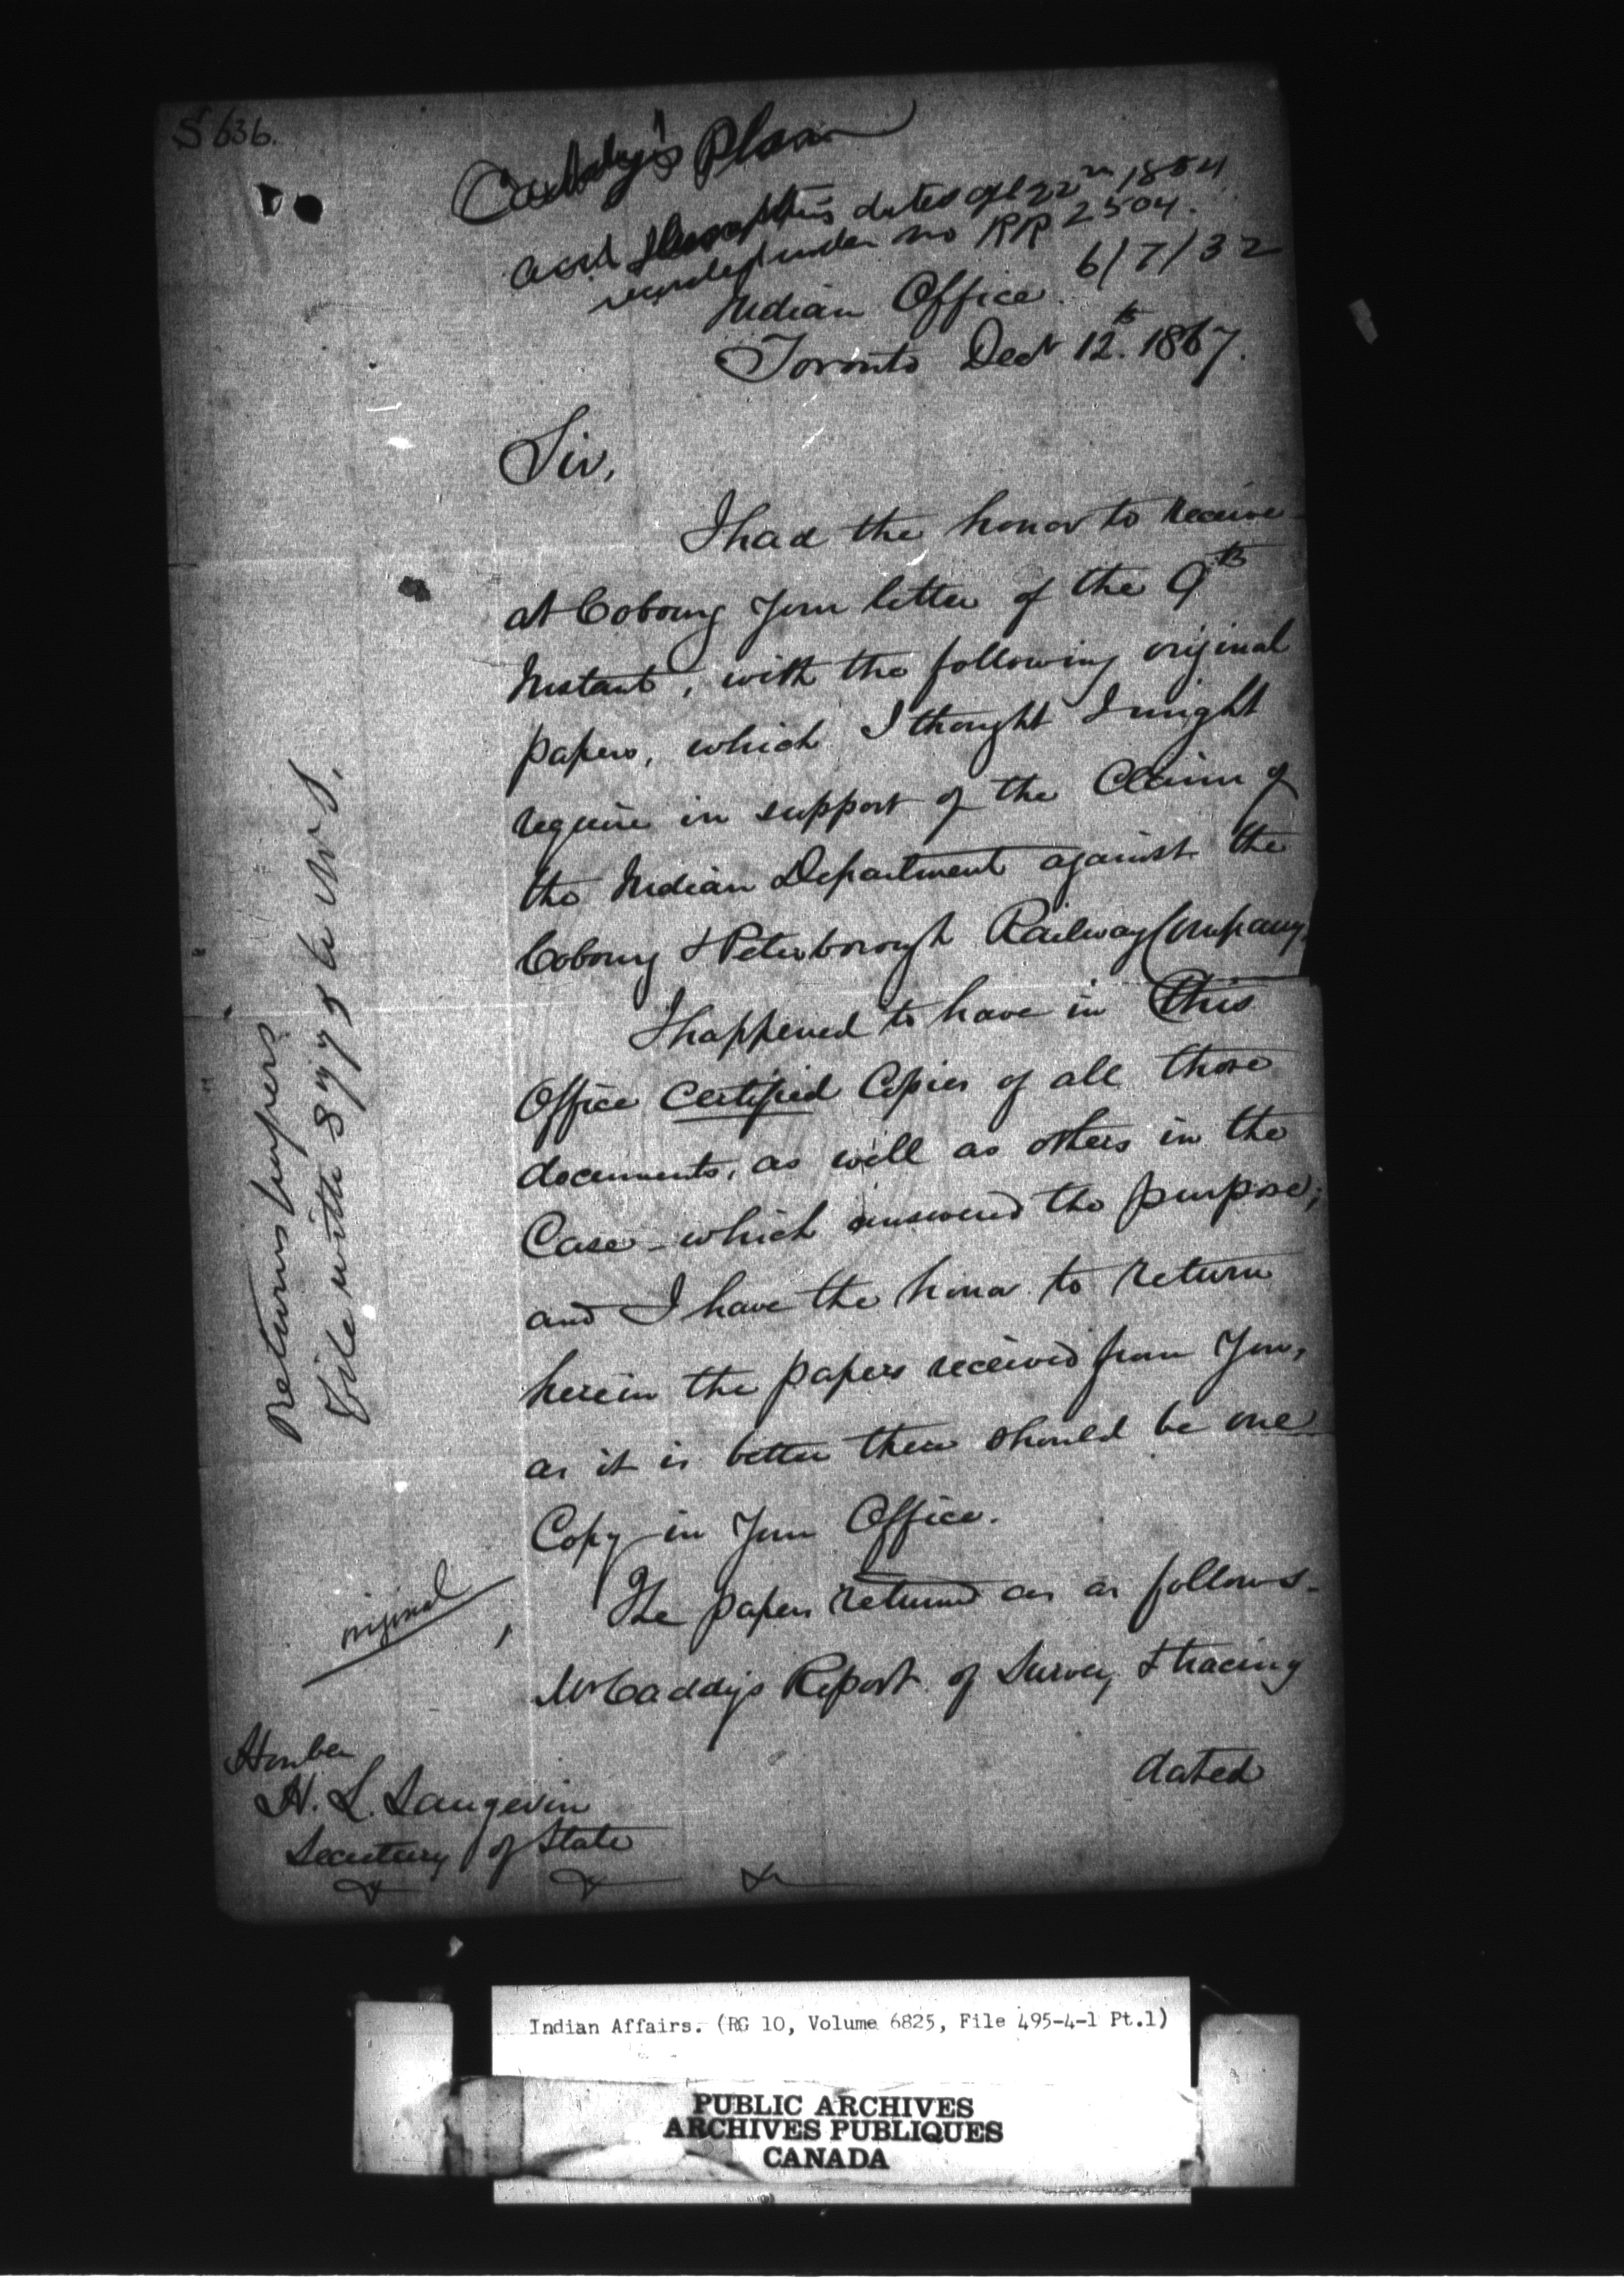 S 636.
Caddy's Plan
and description dated Apl 22nd 1854
recorded under no RR 2504.
6/7/32
Indian Office
Toronto Decr 12th 1867.
Sir,
I had the honor to receive
at Cobourg Your letter of the 9th
Instant, with the following original
papers, which I thought I might
require in support of the Claim of
the Indian Department against the
Cobourg & Peterborough Railway Company.
I happened to have in this
Office certified Copies of all those
documents, as well as others in the
Case - which answered the purpose;
and I have the honor to return
herein the papers received from You,
as it is better there should be one
Copy in Your Office.
The papers returned are as follows -
Mr Caddy's Report of Survey & tracing
dated
Returns papers
File with 8775
original
Honble
H. L. Langevin
Secretary of State
Indian Affairs. (RG 10, Volume 6825, File 495-4-1 Pt.1)
PUBLIC ARCHIVES
ARCHIVES PUBLIQUES
CANADA